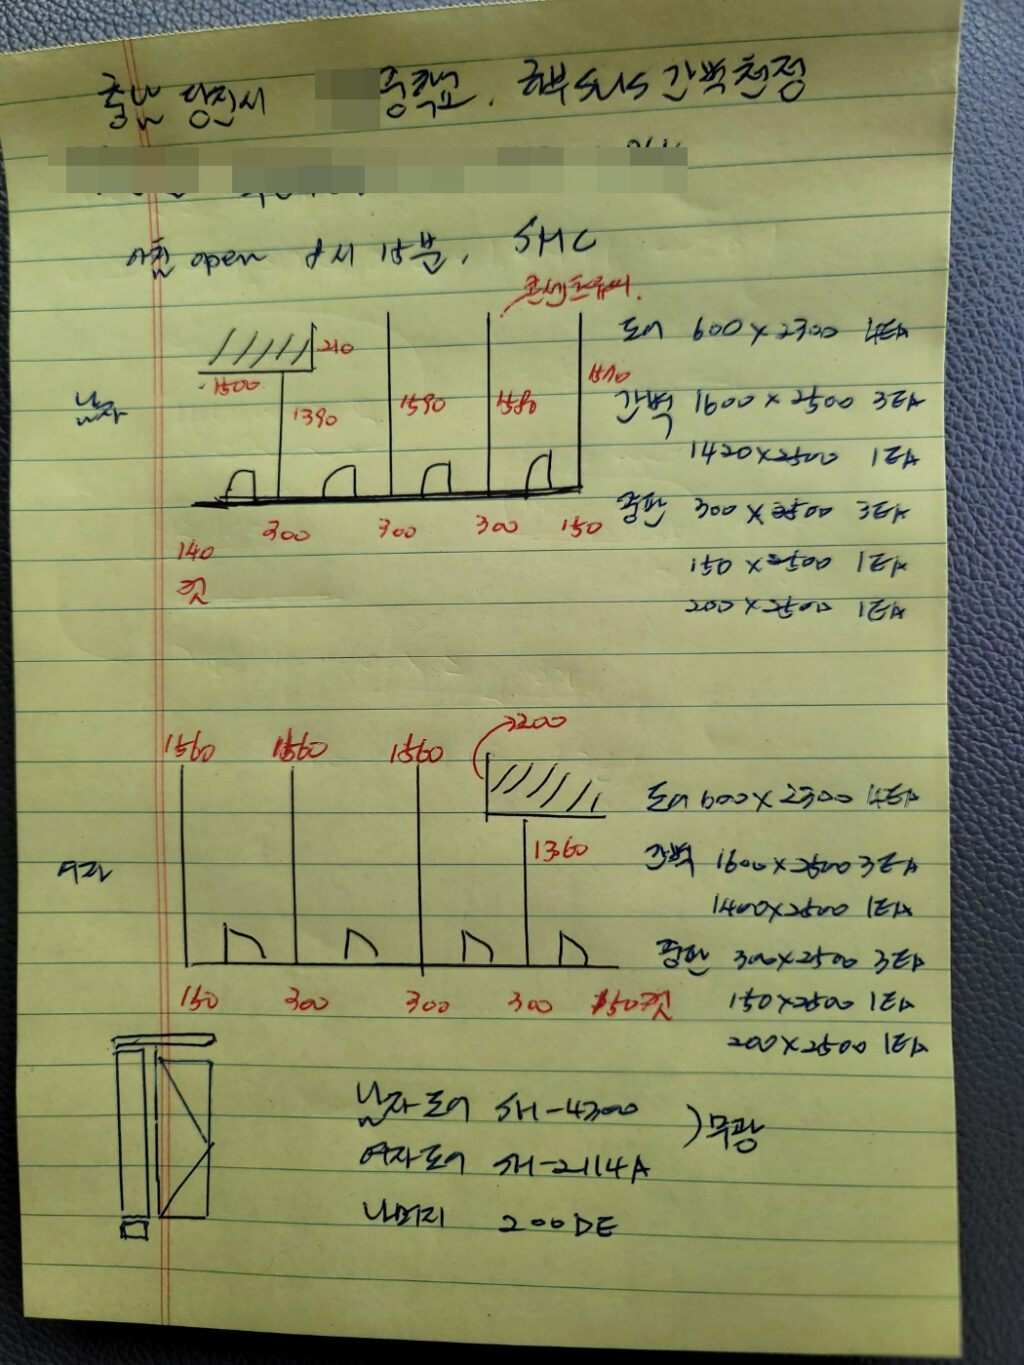 충남 당진시 중학교. 큐부SUS간벽천정
open 8시 15분. SMC
콘센트유の.
남자
210
1500
1390
1590
1580
1510
200
300
300
150
140
컷
도어 600 x 2300 4EA
간벽 1600 x 2500 3EA
1420 x 2500 1EA
중판 300 x 2500 3EA
150 x 2500 1EA
200 x 2500 1EA
여자
1560
1560
1560
2200
1360
150
300
300
300
150컷
도어 600 x 2300 4EA
간벽 1600 x 2500 3EA
1400 x 2500 1EA
중판 300 x 2500 3EA
150 x 2500 1EA
200 x 2500 1EA
남자도어 SH-4300
여자도어 SH-2114A
) 무광
나머지 200DE